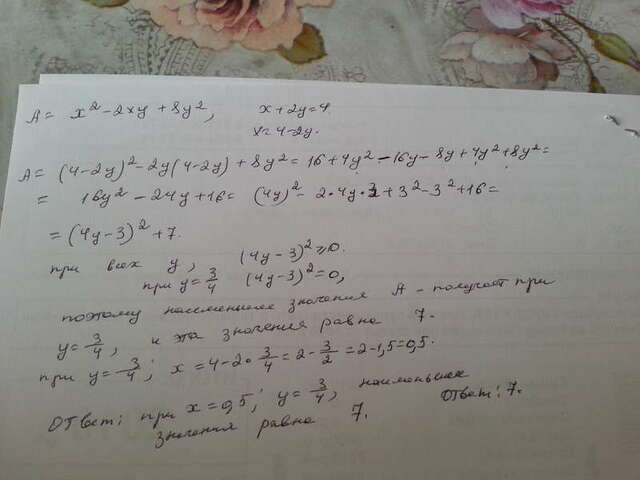 A = x² - 2xy + 8y², x+2y=4.
x=4-2y.
A = (4-2y)² - 2y(4-2y) + 8y² = 16+4y² - 16y - 8y + 4y² + 8y² =
= 16y² - 24y + 16 = (4y)² - 2·4y·3 + 3² - 3² + 16 =
= (4y-3)² + 7.
при всех y, (4y-3)² ≥ 0.
при y = 3/4 (4y-3)² = 0,
поэтому наименьшее значения A - получает при
y = 3/4, и эта значения равна 7.
при y = 3/4; x = 4-2·3/4 = 2 - 3/2 = 2-1,5 = 0,5.
Ответ: при x = 0,5; y = 3/4, наименьшее
значения равна 7. Ответ: 7.